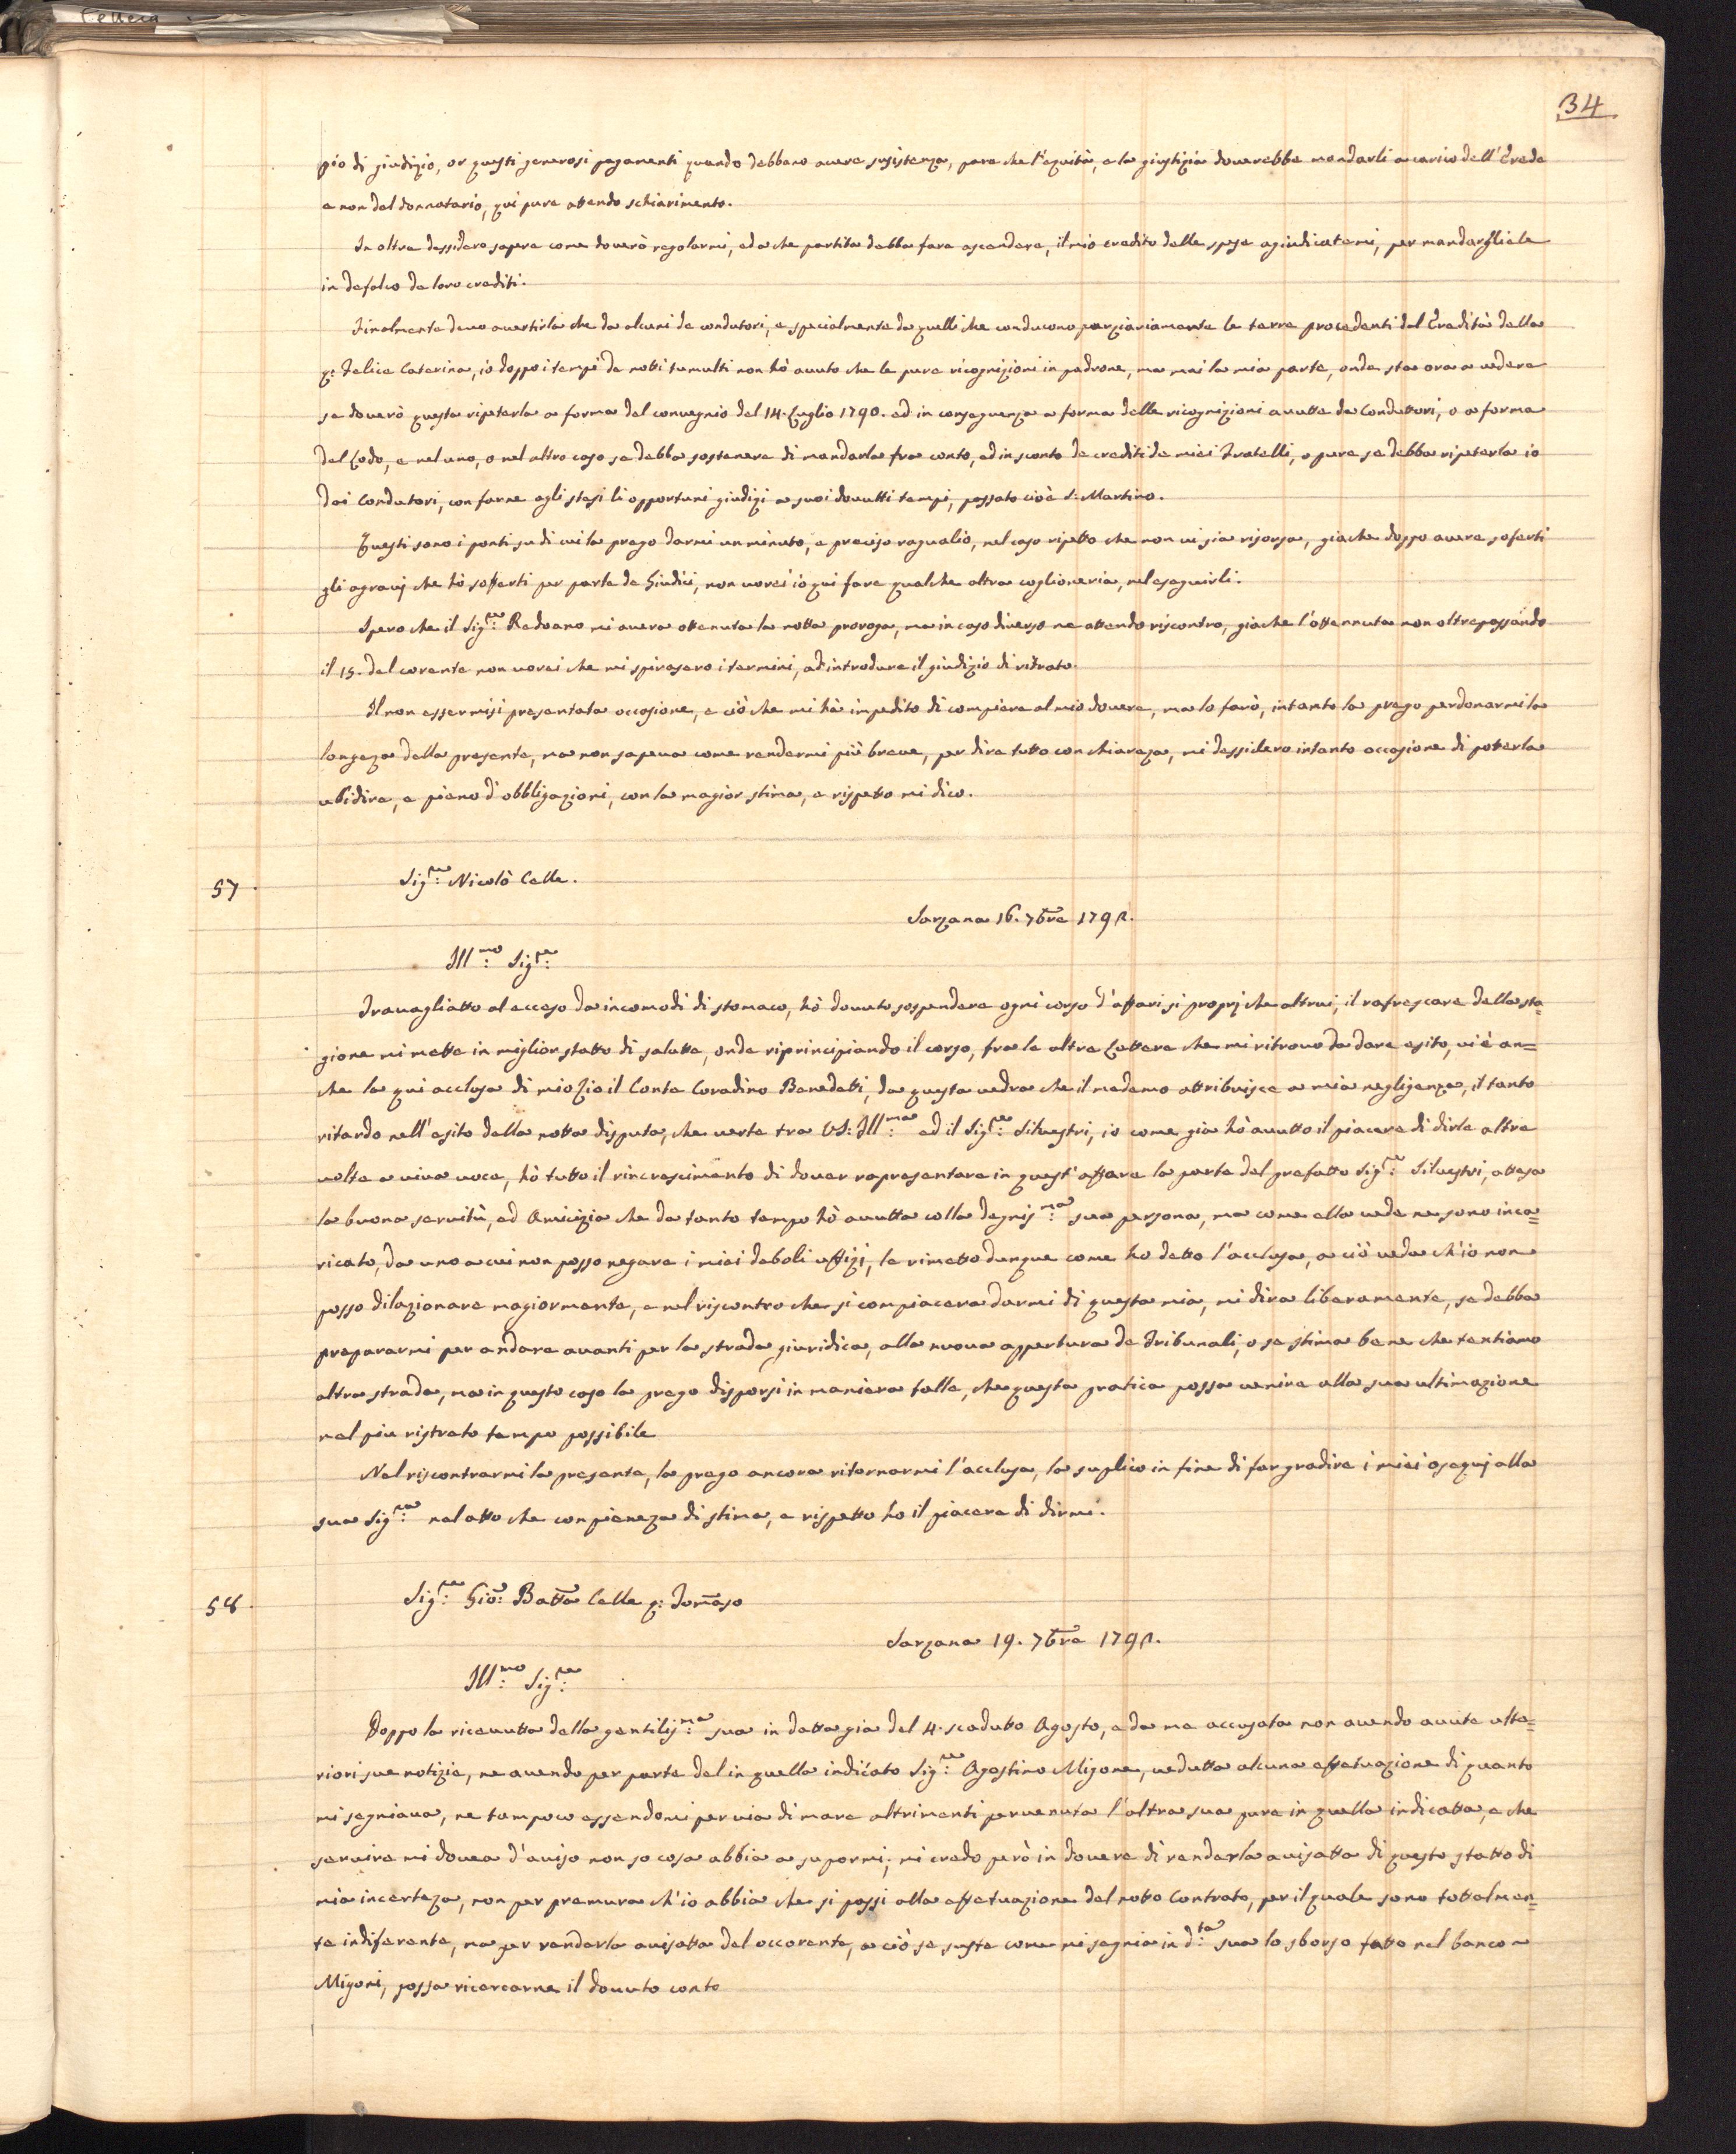 34
pio di giudizio, or questi generosi pagamenti quando debbano avere susistenza, pare che l'equità, e la giustizia doverebbe mandarli a carico dell'Erede
e non del donnatario, qui pure attendo schiarimento.
In oltre dessidero sapere come doverò regolarmi, ed a che partita debba fare ascendere, il mio credito delle spese agiudicatemi, per mandargliele
in defalco de loro crediti.
Finalmente devo avertirla che da alcuni de condutori, e specialmente da quelli che conducono parziariamente le terre procedenti dal Eredità della
q: Felice Caterina, io doppo i tempi de noti tumulti non hò avuto che le pure ricognizioni in padrone, ma mai la mia parte, onde sta ora a vedere
se doverò questa ripeterla a forma del convegnio del 14. Luglio 1790. ed in conseguenza a forma delle ricognizioni avutte da Conduttori, o a forma
del Lodo, e nel uno, o nel altro caso se debba sostenere di mandarla fra conto, ed in sconto de crediti de miei Fratelli, o pure se debba ripeterla io
dai Condutori, con farne agli stesi li opportuni giudizi a suoi dovutti tempi, passato cioè S: Martino.
Questi sono i ponti su di cui la prego darmi un minuto, e preciso ragualio, nel caso ripetto che non vi sia risorsa, giache doppo avere soferti
gli agravj che hò sofferti per parte de Giudici, non vorei io qui fare qualche altra coglioneria, nel eseguirli.
Spero che il Sig:re Redoano mi avera ottenuta la notta proroga, ma in caso diverso ne attendo riscontro, giache l'ottennuta non oltrepassando
il 15. del corente non vorei che mi spirasero i termini, ad introdure il giudizio di ritrato.
Il non essermisi presentata occasione, e ciò che mi hà impedito di compiere al mio dovere, ma lo farò, intanto la prego perdonarmi la
longeza della presente, ma non sapeva come rendermi più breve, per dire tutto con chiareza, mi dessidero intanto occasione di potterla
ubidire, e pieno d'obbligazioni, con la magior stima, e rispetto mi dico.
57.
Sig:re Nicolò Celle.
Sarzana 16. 7bre 1791.
Ill:mo Sig:re
Travagliatto al ecceso da incomodi di stomaco, hò dovuto sospendere ogni corso d'affari si proprj che altrui, il rafrescare della sta=
gione mi mette in miglior statto di salutte, onde riprincipiando il corso, fra le altre Lettere che mi ritrovo da dare esito, vi è an=
che la qui acclusa di mio Zio il Conte Coradino Benedetti, da questa vedra che il medemo attribuisce a mia negligenza, il tanto
ritardo nell'esito della notta disputa, che verte tra VS: Ill:ma ed il Sig:re Silvestri, io come gia hò avutto il piacere di dirle altre
volte a viva voce, hò tutto il rincrescimento di dover rapresentare in quest'affare la parte del prefatto Sig:re Silvestri, attesa
la buona servitù, ed Amicizia che da tanto tempo hò avutta colla degnis:ma sua persona, ma come ella vede ne sono inca=
ricato, da uno a cui non posso negare i miei deboli uffizi, le rimetto dunque come ho detto l'acclusa, a ciò veda ch'io non
posso dilazionare magiormente, e nel riscontro che si compiacera darmi di questa mia, mi dira liberamente, se debba
prepararmi per andare avanti per la strada giuridica, alla nuova appertura de Tribunali, o se stima bene che tentiamo
altra strada, ma in questo caso la prego disporsi in maniera talle, che questa pratica possa venire alla sua ultimazione
nel piu ristreto tempo possibile
Nel riscontrarmi la presente, la prego ancora ritornarmi l'acclusa, la suplico in fine di far gradire i miei osequj alla
sua Sig:ra nel atto che con pieneza di stima, e rispetto ho il piacere di dirmi.
58.
Sig:re Gio: Batta Celle q: Tomaso
Sarzana 19. 7bre 1791.
Ill:mo Sig:re
Doppo la ricevutta della gentilis:ma sua in datta gia del 4. scadutto Agosto, e da me accusata non avendo avute ulte=
riori sue notizie, ne avendo per parte del in quella indicato Sig:re Agostino Migone, vedutta alcuna effetuazione di quanto
mi segniava, ne tampoco essendomi per via di mare altrimenti pervenuta l'altra sua pure in quella indicatta, e che
servire mi dovea d'aviso non so cosa abbia a supormi; mi credo però in dovere di renderla avisatta di questo statto di
mia incerteza, non per premura ch'io abbia che si passi alla effetuazione del notto Contrato, per il quale sono tottalmen=
te indiferente, ma per renderla avisatta del occorente, a ciò se suste come mi segnia in d:ta sua lo sborso fatto nel banco
Migoni, possa ricercarne il dovuto conto